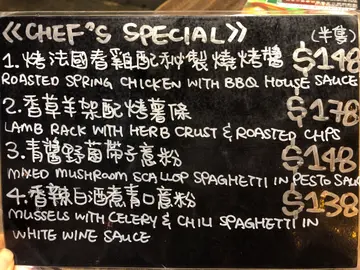 《CHEF'S SPECIAL》 (半隻)
1.烤法國春雞配秘製燒烤醬 $148
ROASTED SPRING CHICKEN WITH BBQ HOUSE SAUCE
2.香草羊架配烤薯條 $178
LAMB RACK WITH HERB CRUST & ROASTED CHIPS
3.青醬野菌帶子意粉 $148
MIXED MUSHROOM SCALLOP SPAGHETTI IN PESTO SAUC
4.香辣白酒煮青口意粉 $138
MUSSELS WITH CELERY & CHILI SPAGHETTI IN
WHITE WINE SAUCE